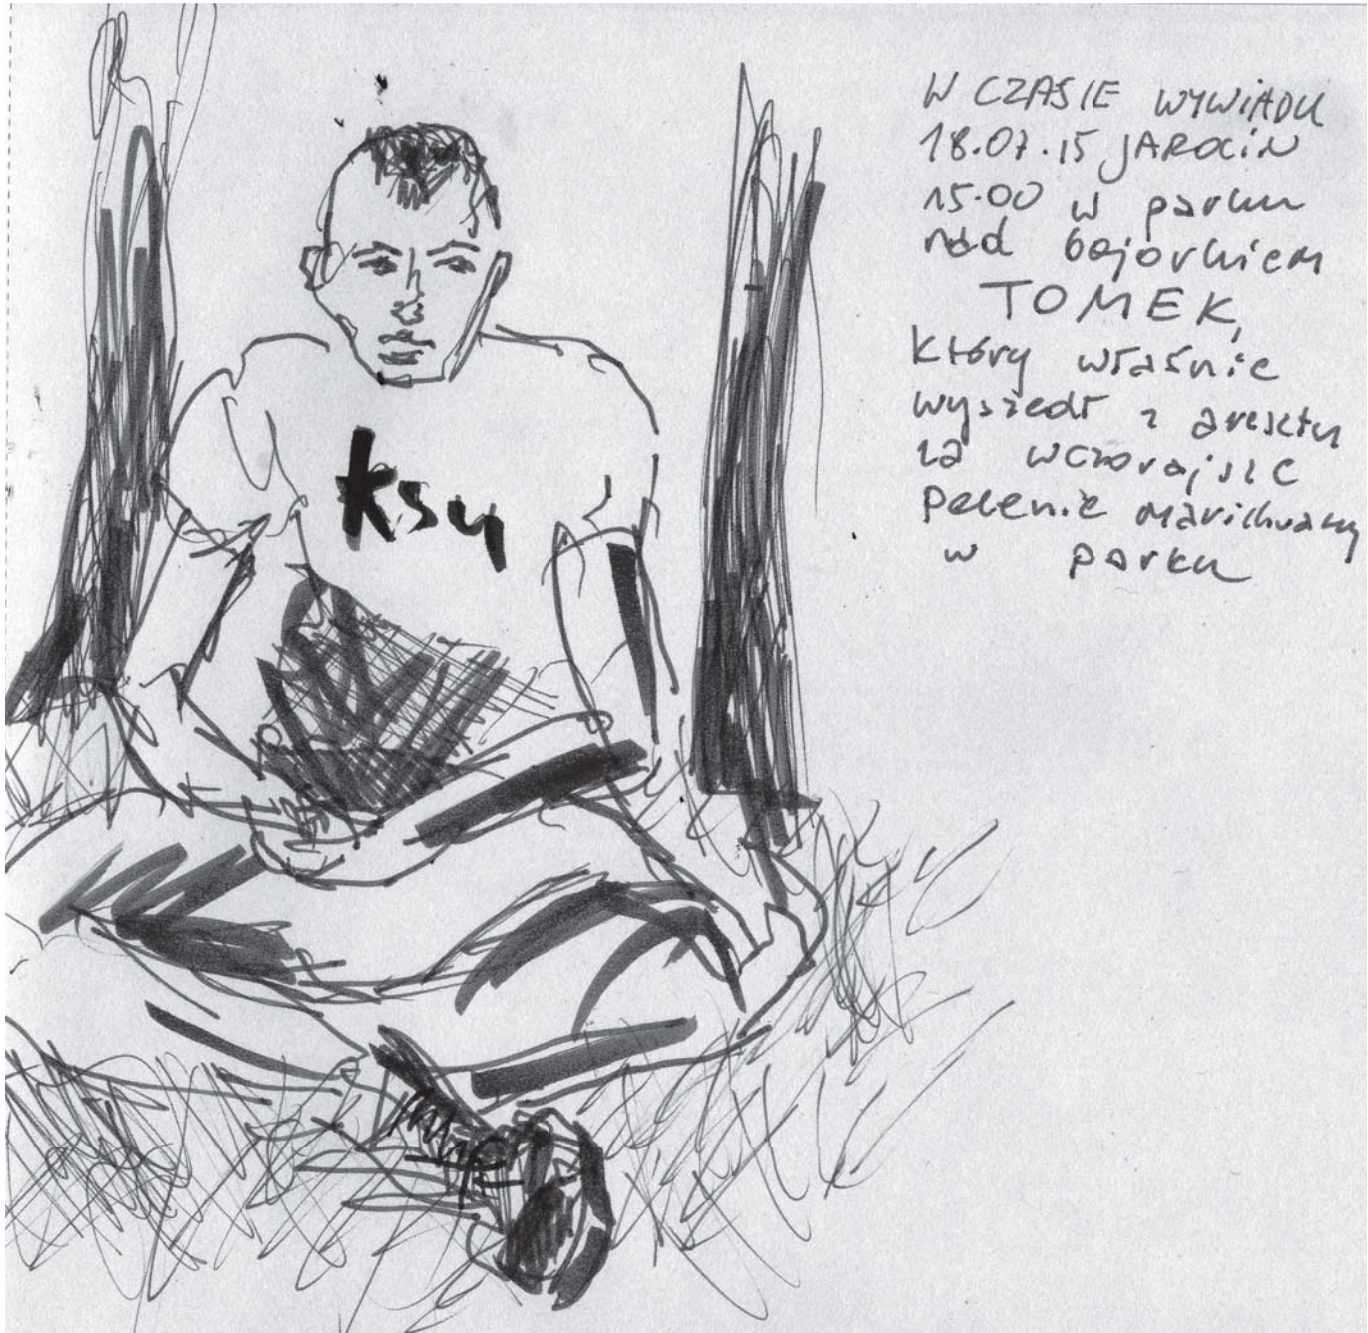 ksu
W CZASIE WYWIADU
18.07.15 JAROCIN
15.00 w parku
nad bajorkiem
TOMEK,
który właśnie
wyszedł z aresztu
za wczorajsze
palenie marihuany
w parku